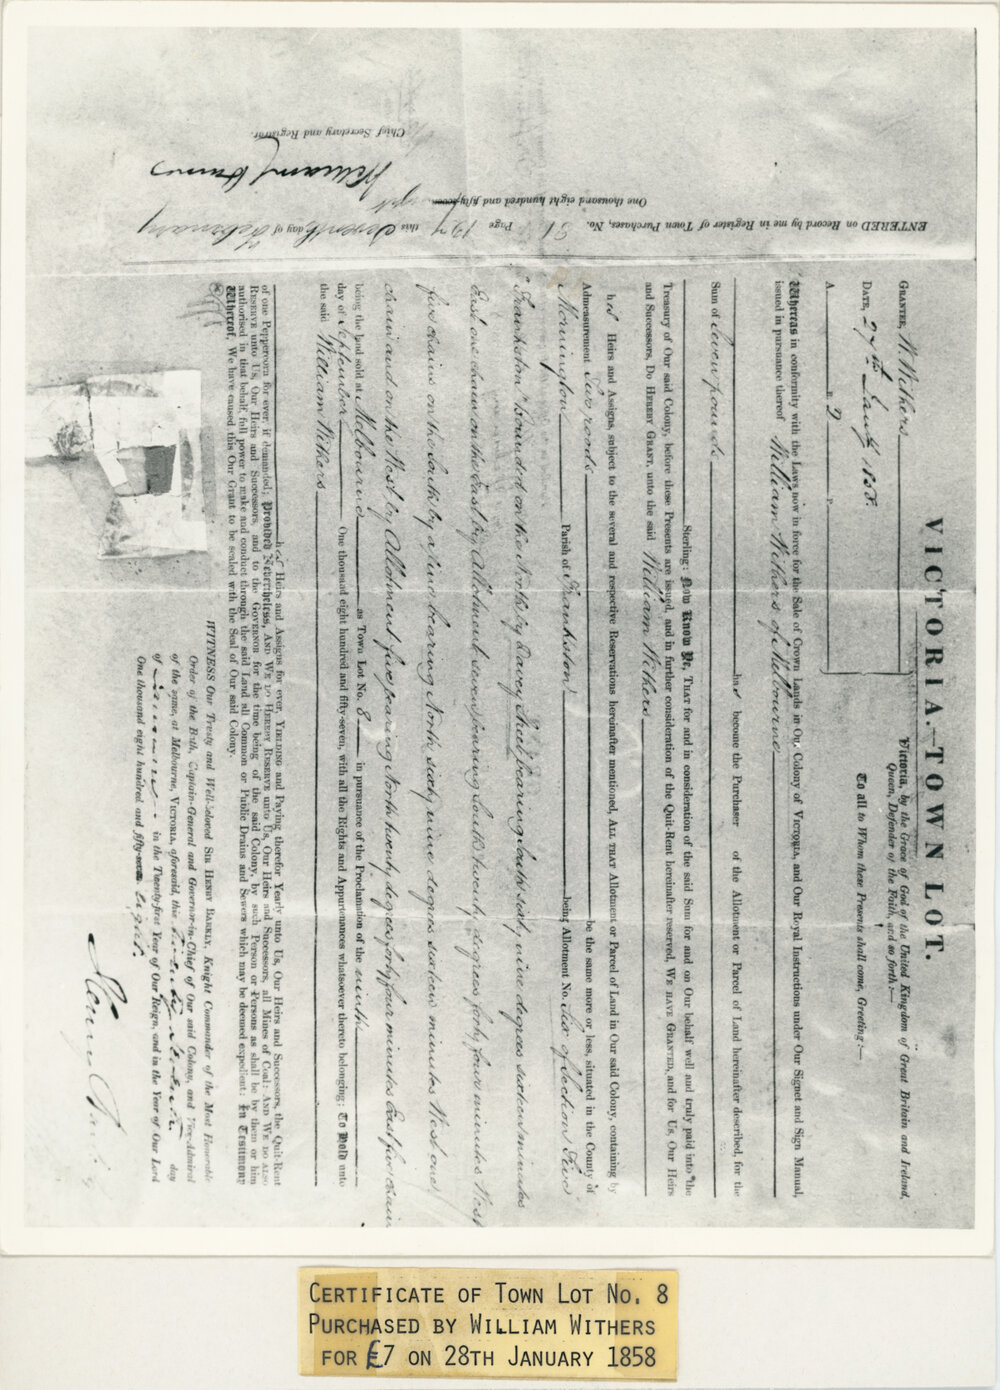 VICTORIA.—TOWN LOT.
Victoria, by the Grace of God of the United Kingdom of Great Britain and Ireland,
Queen, Defender of the Faith, and so forth:—
To all to Whom these Presents shall come, Greeting:—
GRANTEE, W. Withers
DATE, 27th Jany 1858.
A. R. 2 P.
Whereas in conformity with the Laws now in force for the Sale of Crown Lands in Our Colony of VICTORIA, and Our Royal Instructions under Our Signet and Sign Manual,
issued in pursuance thereof William Withers of Melbourne
has become the Purchaser of the Allotment or Parcel of Land hereinafter described, for the
Sum of Seven pounds
Sterling: Now Know Ye, THAT for and in consideration of the said Sum for and on Our behalf well and truly paid into the
Treasury of Our said Colony, before these Presents are issued, and in further consideration of the Quit-Rent hereinafter reserved, WE HAVE GRANTED, and for Us, Our Heirs
and Successors, DO HEREBY GRANT, unto the said William Withers
his Heirs and Assigns, subject to the several and respective Reservations hereinafter mentioned, ALL THAT Allotment or Parcel of Land in Our said Colony, containing by
Admeasurement Two roods be the same more or less, situated in the County of
Mornington Parish of Frankston being Allotment No. Six of Section Five
"Frankston" bounded on the North by Davey Street bearing South sixty nine degrees sixteen minutes
East one chain on the East by Allotment seven bearing South twenty degrees forty four minutes West
five chains on the South by a line bearing North sixty nine degrees sixteen minutes West one
chain and on the West by Allotment five bearing North twenty degrees forty four minutes East five chains
being the Land sold at Melbourne as Town Lot No. 8 in pursuance of the Proclamation of the ninth
day of September One thousand eight hundred and fifty-seven, with all the Rights and Appurtenances whatsoever thereto belonging: To Hold unto
the said William Withers
his Heirs and Assigns for ever, YIELDING and Paying therefor Yearly unto Us, Our Heirs and Successors, the Quit-Rent
of one Peppercorn for ever, if demanded: Provided Nevertheless, AND WE DO HEREBY RESERVE unto Us, Our Heirs and Successors, all Mines of Coal: AND WE DO ALSO
RESERVE unto Us, Our Heirs and Successors, and to the GOVERNOR for the time being of the said Colony, by such Person or Persons as shall be by them or him
authorised in that behalf, full power to make and conduct through the said Land all Common or Public Drains and Sewers which may be deemed expedient: In Testimony
Whereof, We have caused this Our Grant to be sealed with the Seal of Our said Colony.
WITNESS Our Trusty and Well-beloved SIR HENRY BARKLY, Knight Commander of the Most Honorable
Order of the Bath, Captain-General and Governor-in-Chief of Our said Colony, and Vice-Admiral
of the same, at Melbourne, VICTORIA, aforesaid, this twenty seventh day
of January in the Twenty-first Year of Our Reign, and in the Year of Our Lord
One thousand eight hundred and fifty-seven eight.
Henry Barkly
ENTERED on Record by me in Register of Town Purchases, No. 31 Page 127 this Seventh day of February
One thousand eight hundred and fifty-seven eight
Chief Secretary and Registrar.
CERTIFICATE OF TOWN LOT NO. 8
PURCHASED BY WILLIAM WITHERS
FOR £7 ON 28TH JANUARY 1858